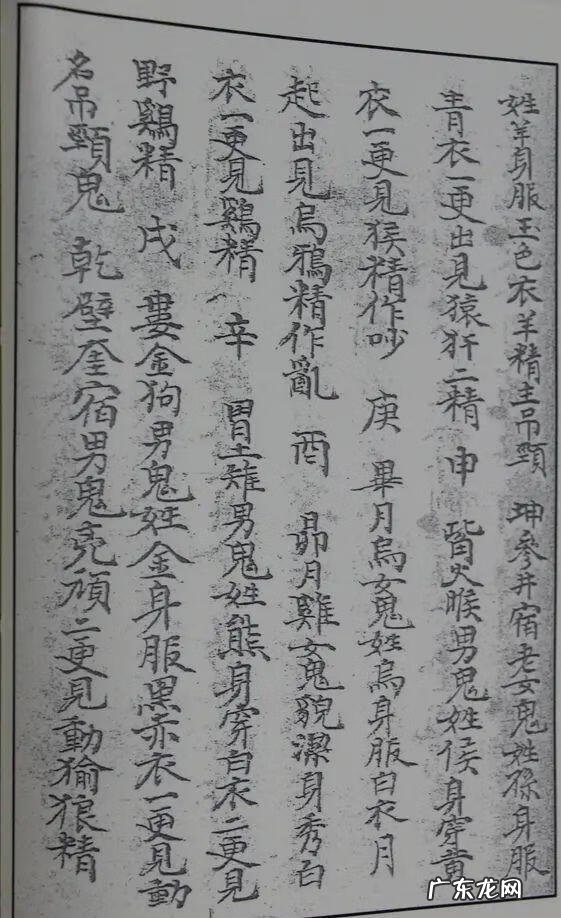 姓羊身服玉色衣羊精主吊頸 坤參井宿老女鬼姓孫身服
青衣一更出見猿犴二精 申 觜火猴男鬼姓侯身穿黄
衣一更見猴精作吵 庚 畢月烏女鬼姓烏身服白衣月
起出見烏鴉精作亂 酉 昴月雞女鬼貌潔身秀白
衣一更見鷄精 辛 胃土雉男鬼姓熊身穿白衣二更見
野鷄精 戌 婁金狗男鬼姓金身服黑赤衣一更見動
名吊頸鬼 乾壁奎宿男鬼亮頑二更見動㺄狼精
广东龙网